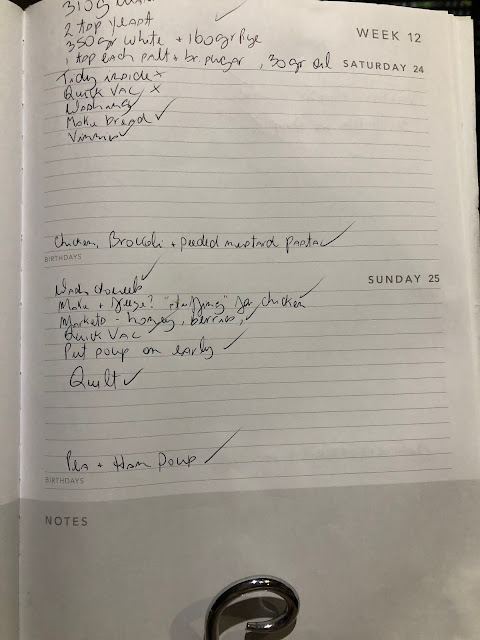 310g
2 tsp yeast
WEEK 12
350gr white + 160gr Rye
1 tsp each salt + br. sugar, 30gr oil
SATURDAY 24
Tidy inside x
Quick Vac x
Washing ✓
Make bread ✓
Chicken, Broccoli + seeded mustard pasta ✓
BIRTHDAYS
SUNDAY 25
Wash ✓
Make + freeze? "stuffing" for chicken ✓
Markets - honey, berries, ✓
Quick Vac ✓
Put soup on early ✓
Quilt ✓
Pea + Ham Soup ✓
BIRTHDAYS
NOTES